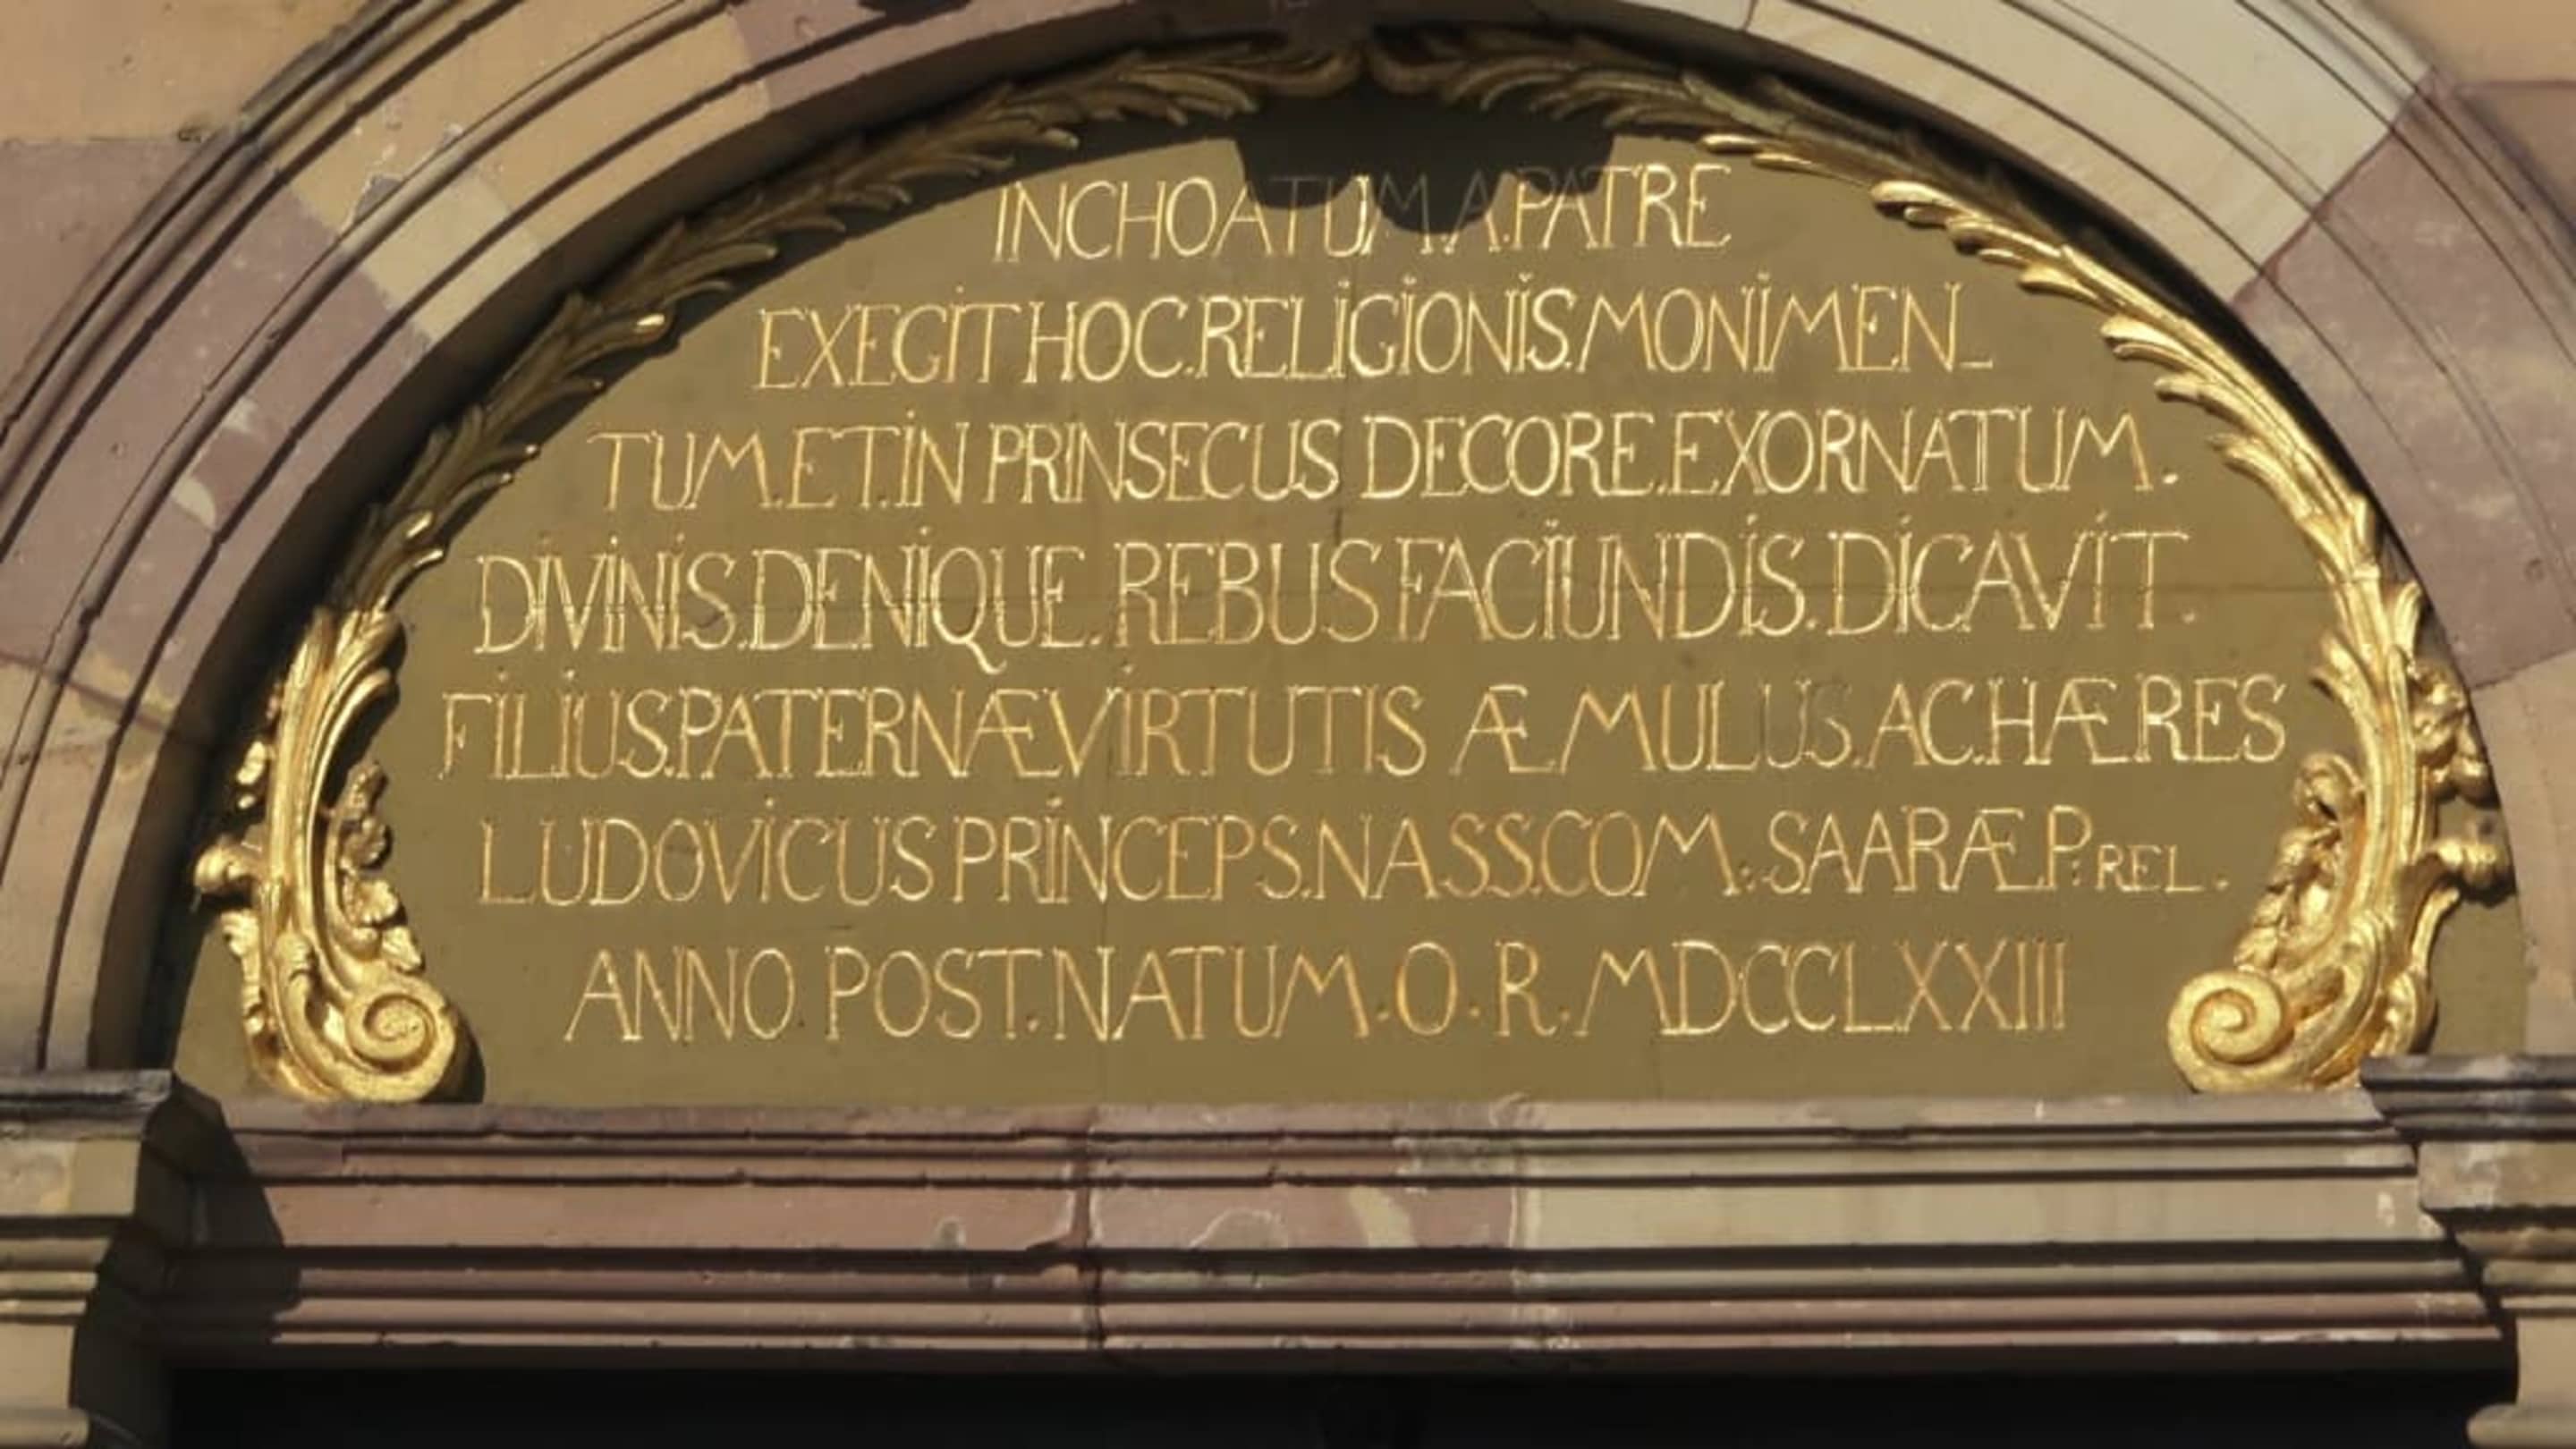 INCHOATUM A.PATRE
EXEGIT HOC.RELIGIONIS.MONIMEN_
TUM.ET.IN PRINSECUS DECORE.EXORNATUM.
DIVINIS.DENIQUE.REBUS FACIUNDIS.DICAVIT.
FILIUS.PATERNÆ VIRTUTIS ÆMULUS.AC.HÆRES
LUDOVICUS PRINCEPS.NASS.COM.SAARÆ.P:REL.
ANNO POST.NATUM.O.R.MDCCLXXIII